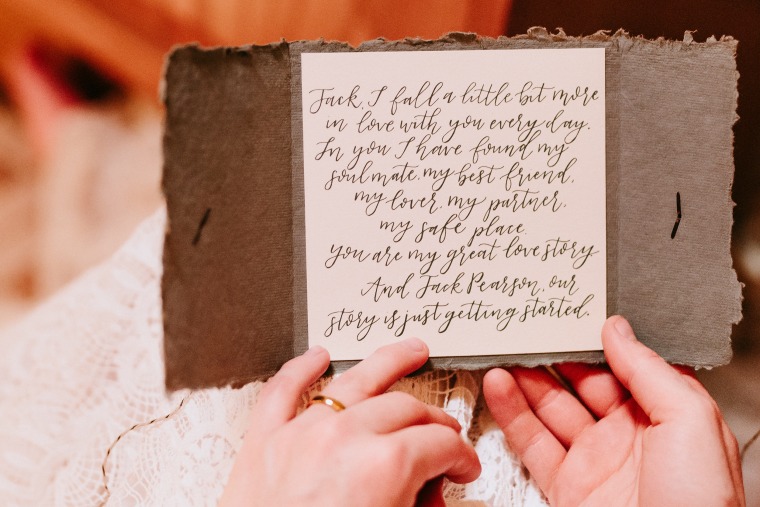 Jack, I fall a little bit more
in love with you every day.
In you I have found my
soulmate, my best friend,
my lover, my partner,
my safe place.
You are my great love story
And Jack Pearson, our
story is just getting started.